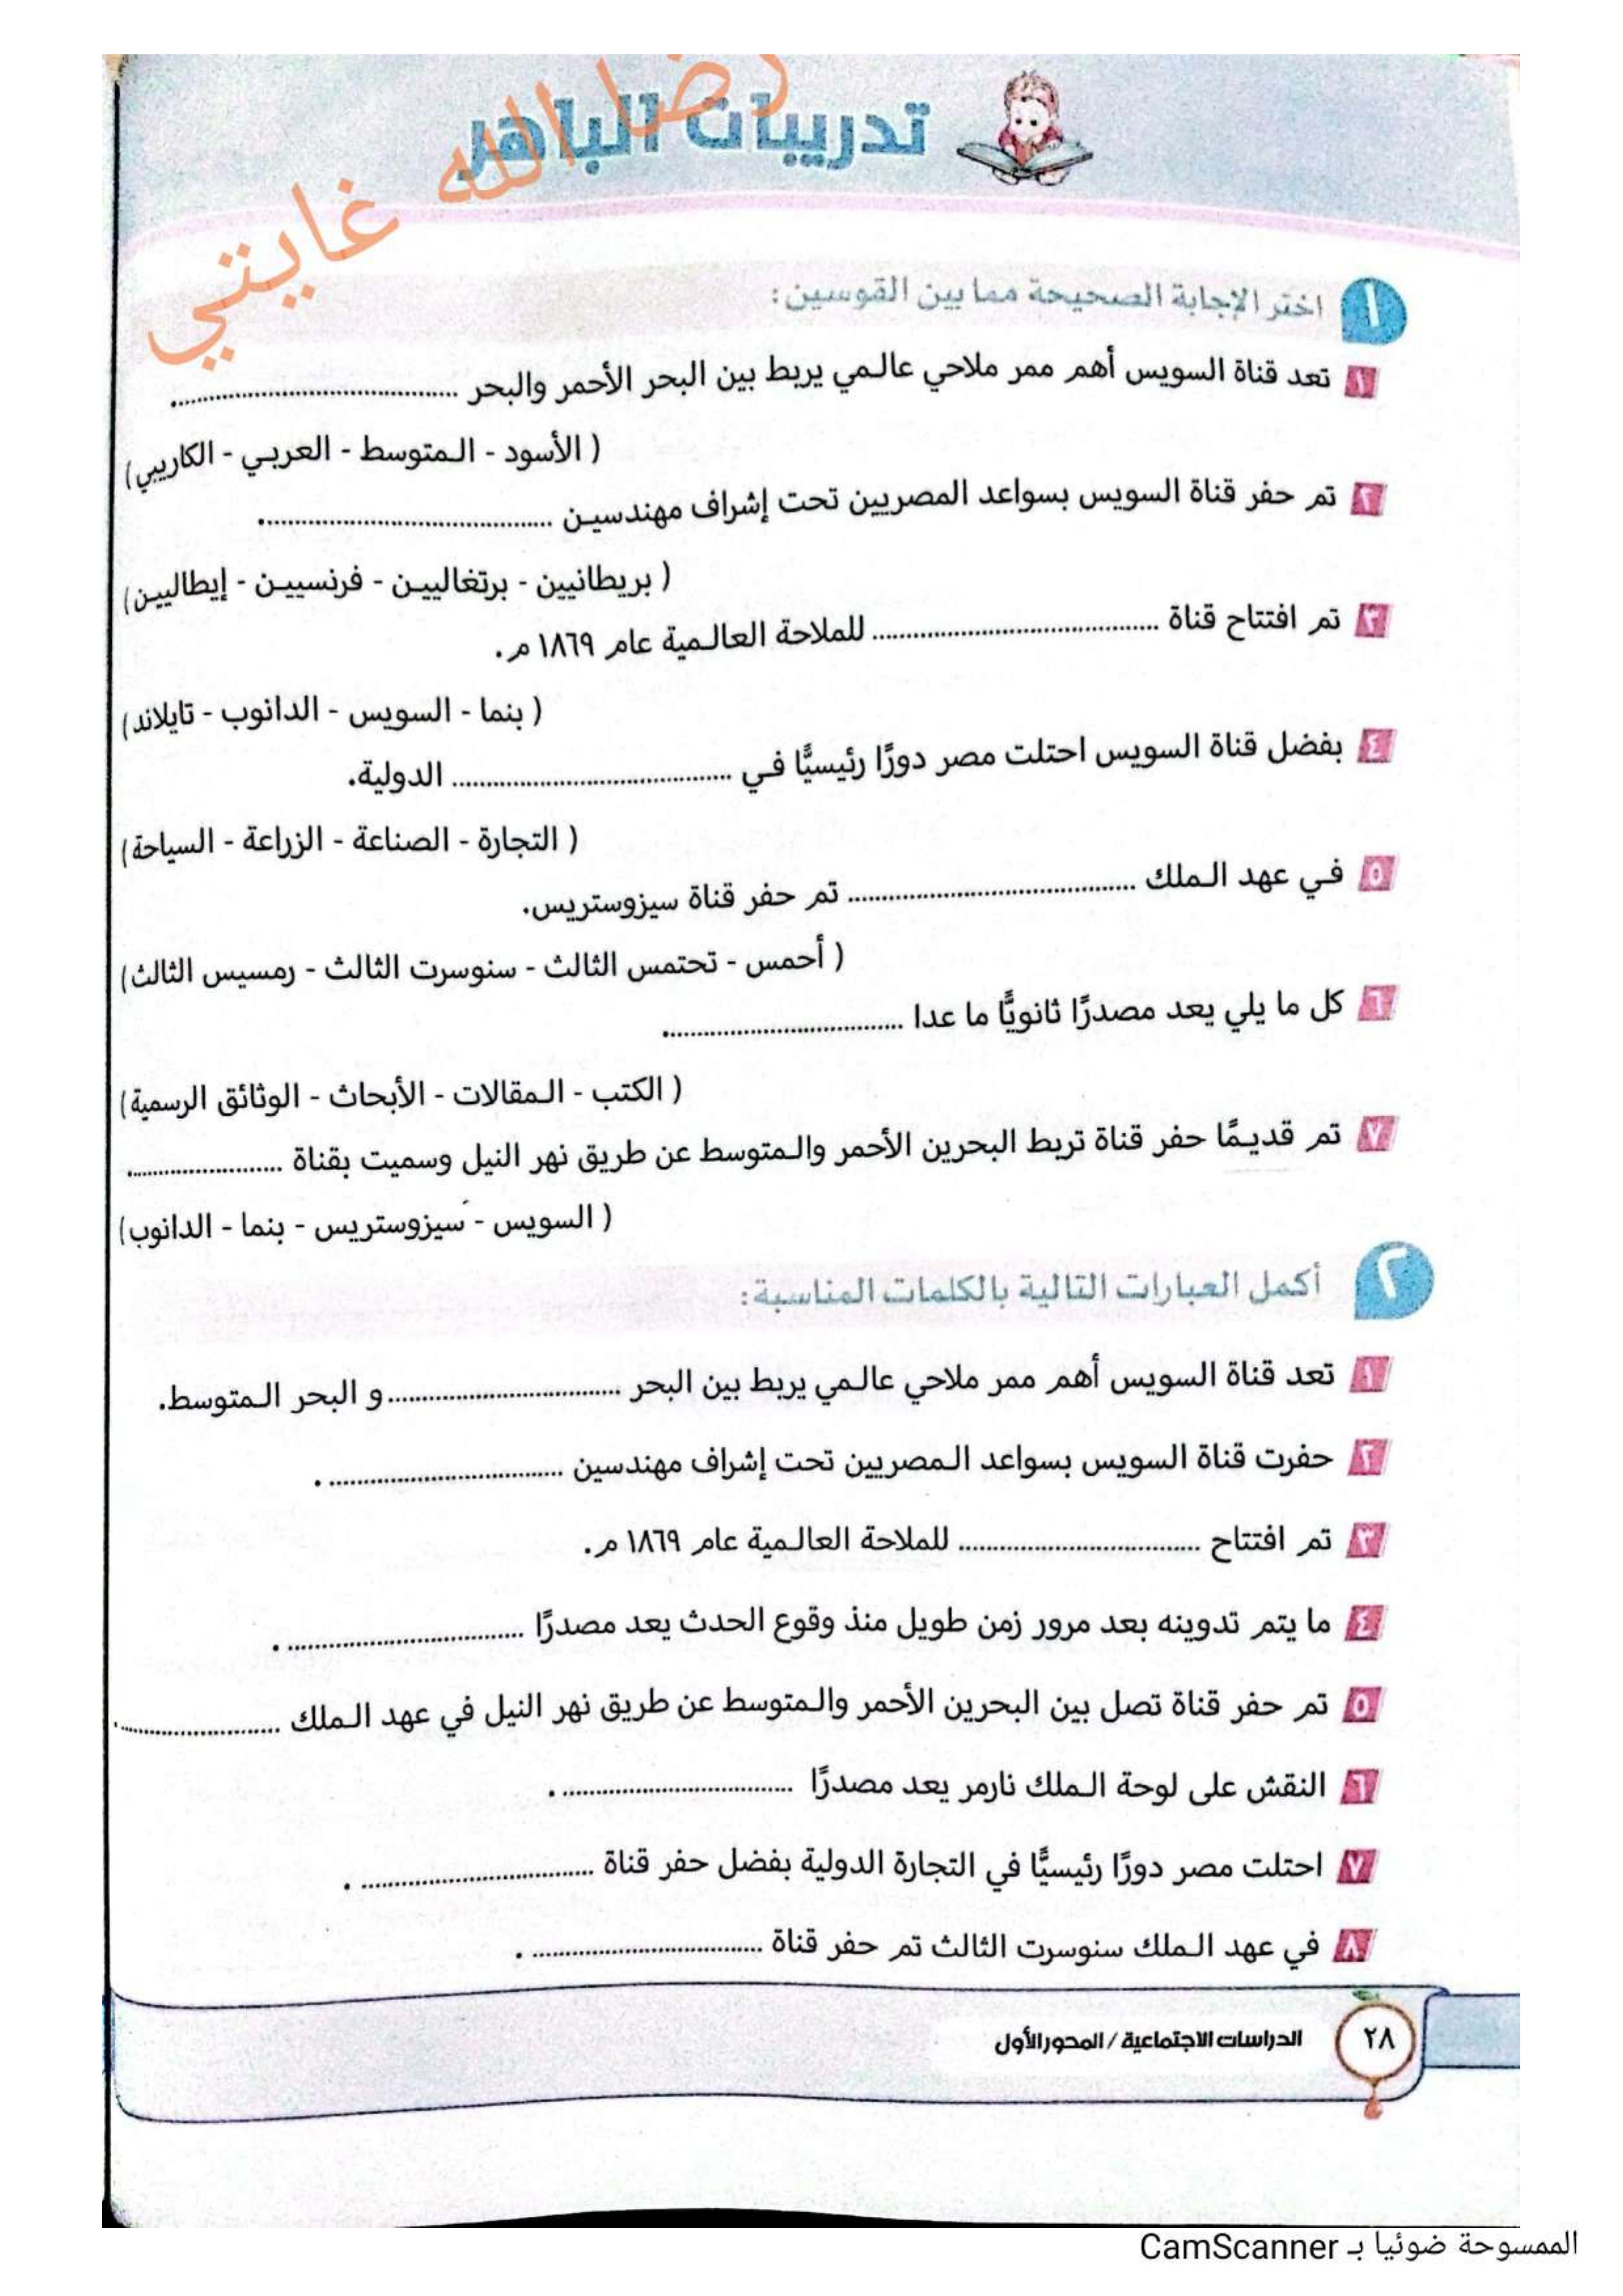 تدريبات الباهر
رضا الله غايتي
١ اختر الإجابة الصحيحة مما بين القوسين:
١ تعد قناة السويس أهم ممر ملاحي عالمي يربط بين البحر الأحمر والبحر ........................................
( الأسود - المتوسط - العربي - الكاريبي)
٢ تم حفر قناة السويس بسواعد المصريين تحت إشراف مهندسين ........................................
( بريطانيين - برتغاليين - فرنسيين - إيطاليين)
٣ تم افتتاح قناة ........................................ للملاحة العالمية عام ١٨٦٩ م.
( بنما - السويس - الدانوب - تايلاند)
٤ بفضل قناة السويس احتلت مصر دورًا رئيسيًّا في ........................................ الدولية.
( التجارة - الصناعة - الزراعة - السياحة)
٥ في عهد الملك ........................................ تم حفر قناة سيزوستريس.
( أحمس - تحتمس الثالث - سنوسرت الثالث - رمسيس الثالث)
٦ كل ما يلي يعد مصدرًا ثانويًّا ما عدا ........................................
( الكتب - المقالات - الأبحاث - الوثائق الرسمية)
٧ تم قديمًا حفر قناة تربط البحرين الأحمر والمتوسط عن طريق نهر النيل وسميت بقناة ......................
( السويس - سيزوستريس - بنما - الدانوب)
٢ أكمل العبارات التالية بالكلمات المناسبة:
١ تعد قناة السويس أهم ممر ملاحي عالمي يربط بين البحر ................................ و البحر المتوسط.
٢ حفرت قناة السويس بسواعد المصريين تحت إشراف مهندسين ................................ .
٣ تم افتتاح ................................ للملاحة العالمية عام ١٨٦٩ م.
٤ ما يتم تدوينه بعد مرور زمن طويل منذ وقوع الحدث يعد مصدرًا ................................ .
٥ تم حفر قناة تصل بين البحرين الأحمر والمتوسط عن طريق نهر النيل في عهد الملك ......................
٦ النقش على لوحة الملك نارمر يعد مصدرًا ................................ .
٧ احتلت مصر دورًا رئيسيًّا في التجارة الدولية بفضل حفر قناة ................................ .
٨ في عهد الملك سنوسرت الثالث تم حفر قناة ................................ .
٢٨ الدراسات الاجتماعية / المحور الأول
الممسوحة ضوئيا بـ CamScanner